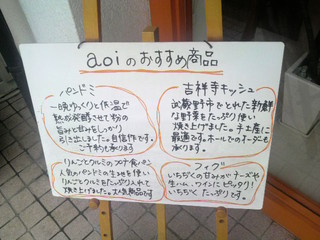 aoiのおすすめ商品
パンドミ
一晩ゆっくりと低温で
熟成発酵させて粉の
旨みと甘みをしっかり
引き出しました。自信作です。
ご予約も承ります
吉祥寺キッシュ
武蔵野市でとれた新鮮
な野菜をたっぷり使い
焼き上げました。手土産に
最適です。ホールでのオーダーも
承ります。
りんごとクルミのプチ食パン
人気のパンドミの生地を使い
りんごとクルミをたっぷり入れて
焼き上げました。大人気商品です
フィグ
いちぢくの甘みがチーズや
生ハム、ワインにピッタリ!
いちぢくたっぷりです。